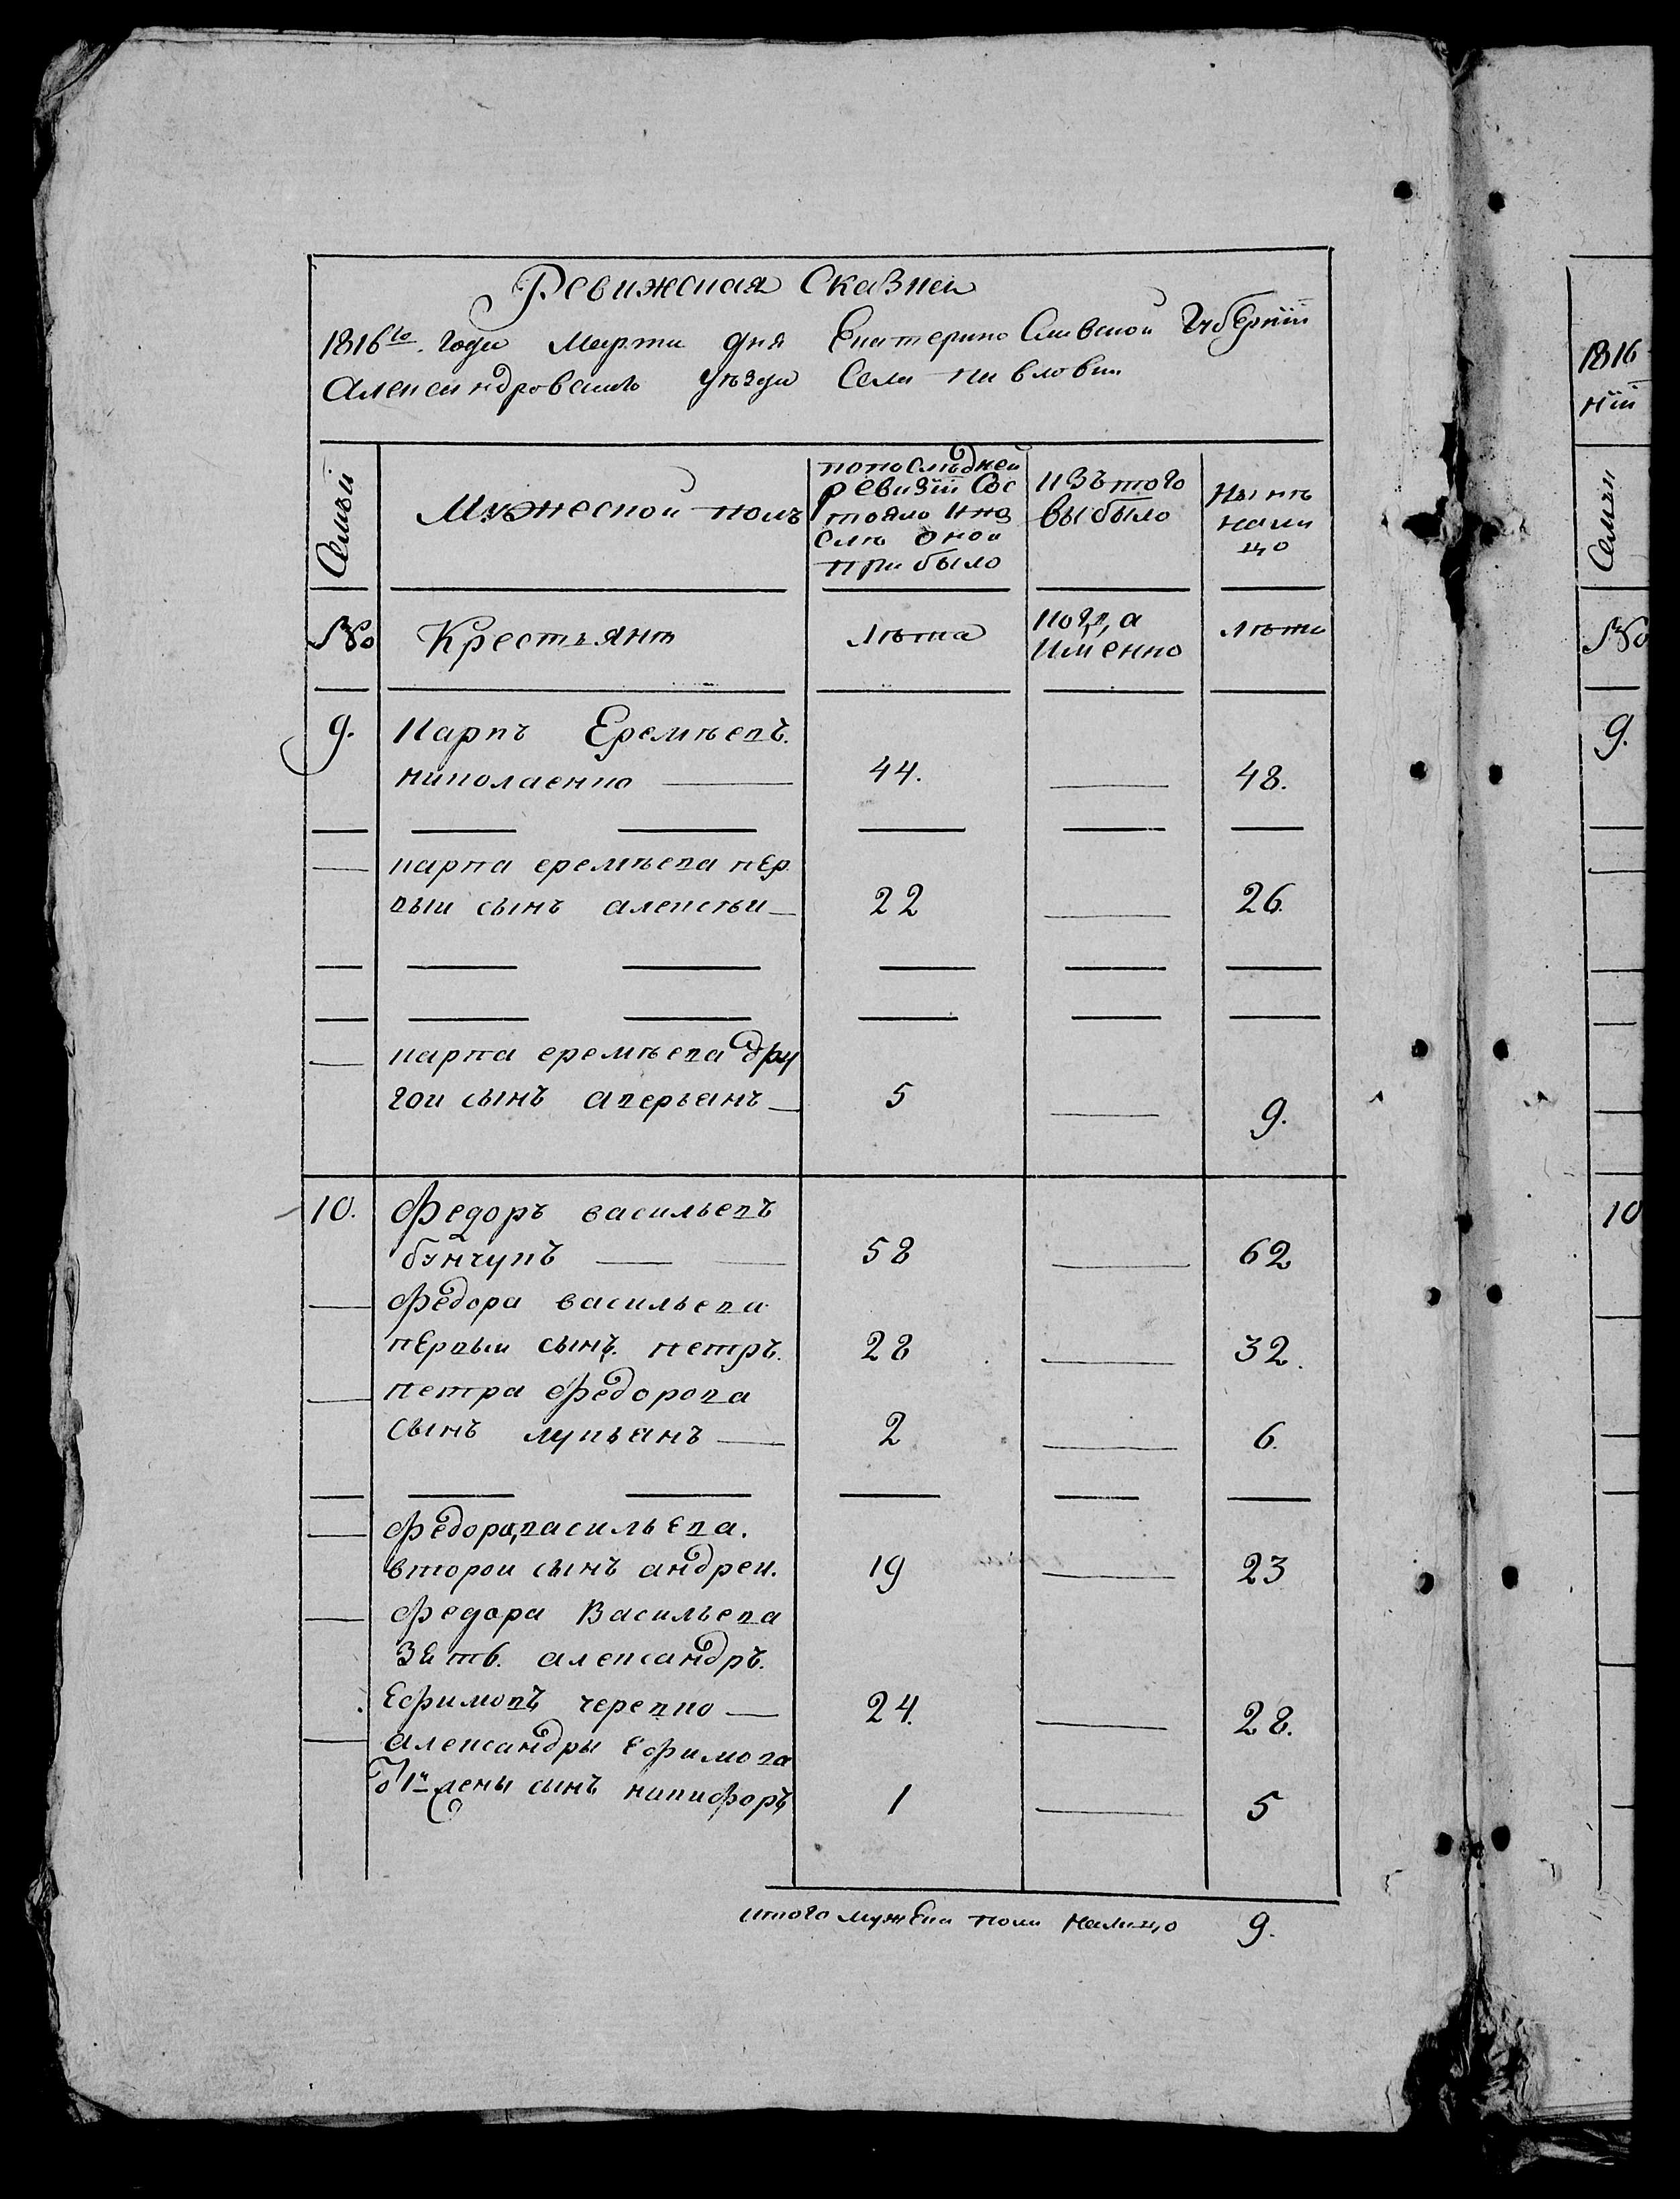 Ревижская Сказка
1816го. года Марта дня Екатерино Славской Губернїи
Александровскаго уѣзда Села Павловки
Семьи
Мужеской полъ
попослѣдней ревизїи Сос тояло ипо слѣ оной при было
изътого выбыло
Нынѣ нали цо
№
Крестьянѣ
лѣта
когда имянно
лѣта
9. Карпъ Еремѣевъ
николаенко 44. 48.
карпа еремѣева пер
вый сынъ алексѣй 22 26.
карпа еремѣева дру
гой сынъ аверьянъ 5 9.
10. Федоръ васильевъ
бунчукъ 58 62
федора васильева
первый сынъ петръ. 28 32.
петра федорова
сынъ лукьянъ 2 6.
федора васильева.
второй сынъ андрей. 19 23
федора Васильева
зять александръ.
Ефимовъ черевко 24. 28.
александры Ефимова
1й жены сынъ никифоръ 1 5
итого мужска пола налицо 9.
1816
нїи
Семьи
№
9.
10